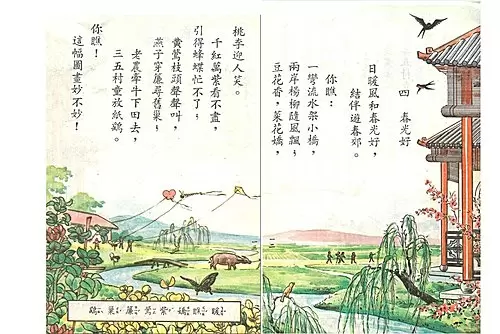 四 春光好
日暖風和春光好，
結伴遊春郊。
你瞧：
一彎流水架小橋，
兩岸楊柳隨風飄；
豆花香，菜花嬌，
桃李迎人笑。
千紅萬紫看不盡，
引得蜂蝶忙不了；
黃鶯枝頭聲聲叫，
燕子穿簾尋舊巢；
老農牽牛下田去，
三五村童放紙鷂。
你瞧！
這幅圖畫妙不妙！
暖 瞧 嬌 紫 鶯 簾 巢 鷂